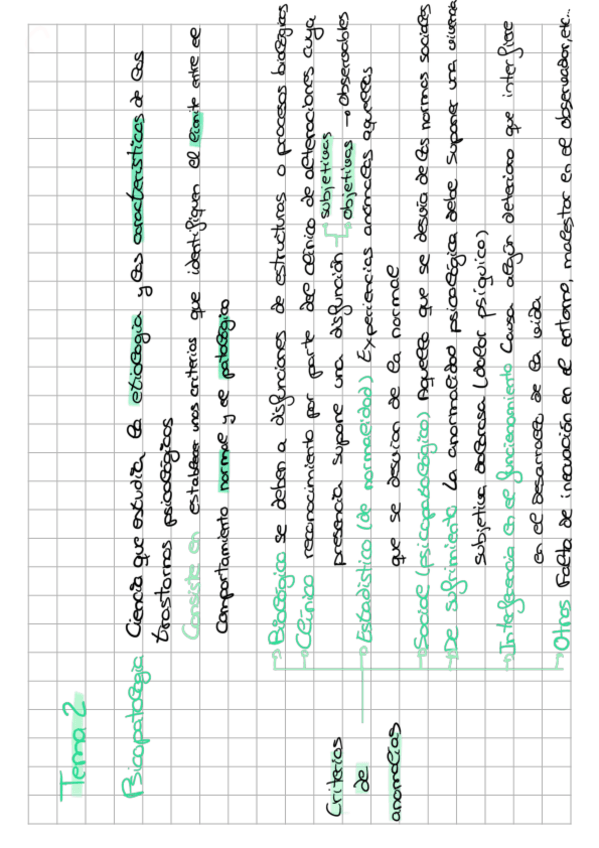 Tema 2
Psicopatología Ciencia que estudia la etiología y las características de los
trastornos psicológicos
Consiste en establecer unos criterios que identifiquen el límite entre el
comportamiento normal y el patológico
Criterios
de
anomalías
→ Biológico se deben a disfunciones de estructuras o procesos biológicos
→ Clínico reconocimiento por parte del clínico de alteraciones cuya
presencia supone una disfunción
subjetivas
objetivas → observables
→ Estadístico (de normalidad) Experiencias anómalas aquellas
que se desvían de la normal
→ Social (psicopatológico) Aquello que se desvía de las normas sociales
→ De sufrimiento La anormalidad psicológica debe suponer una
subjetiva dolorosa (dolor psíquico)
→ Interferencia en el funcionamiento Causa algún deterioro que interfiere
en el desarrollo de la vida
→ Otros Falta de inecuación en el entorno, malestar en el observador, etc...